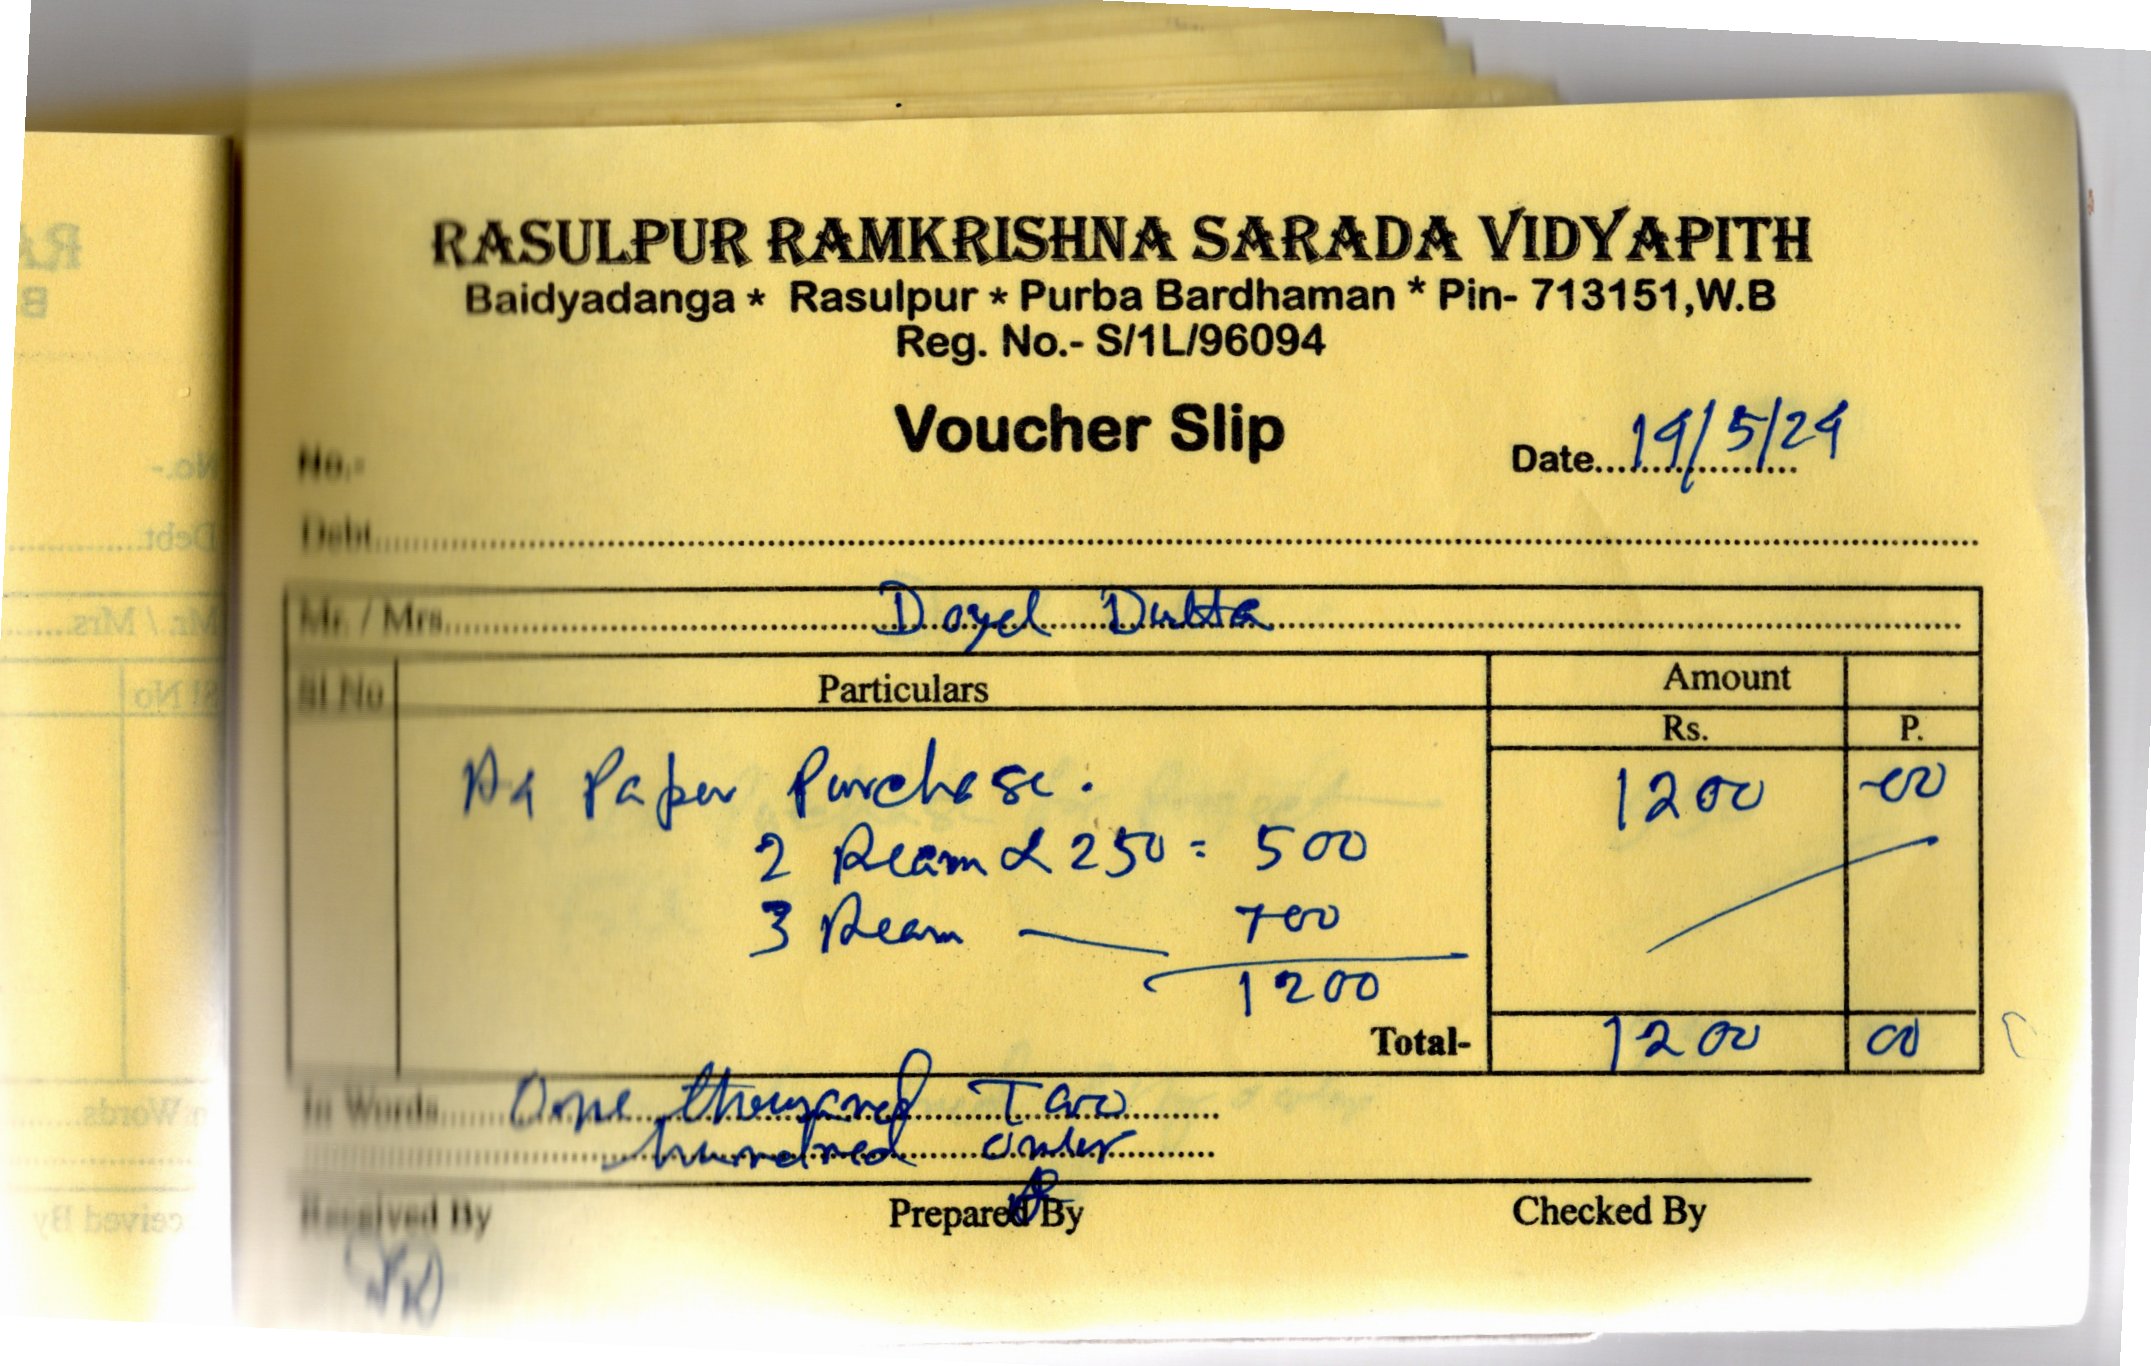 RASULPUR RAMKRISHNA SARADA VIDYAPITH
Baidyadanga * Rasulpur * Purba Bardhaman * Pin- 713151,W.B
Reg. No.- S/1L/96094
Voucher Slip
No.-
Date 14/5/24
Debt
Mr. / Mrs. Doyel Dutta
Sl No Particulars Amount
Rs. P.
A4 Paper Purchase. 1200 -00
2 Ream @ 250 = 500
3 Ream — 700
1200
Total- 1200 00
In Words One thousand Two
hundred only
Received By Prepared By Checked By